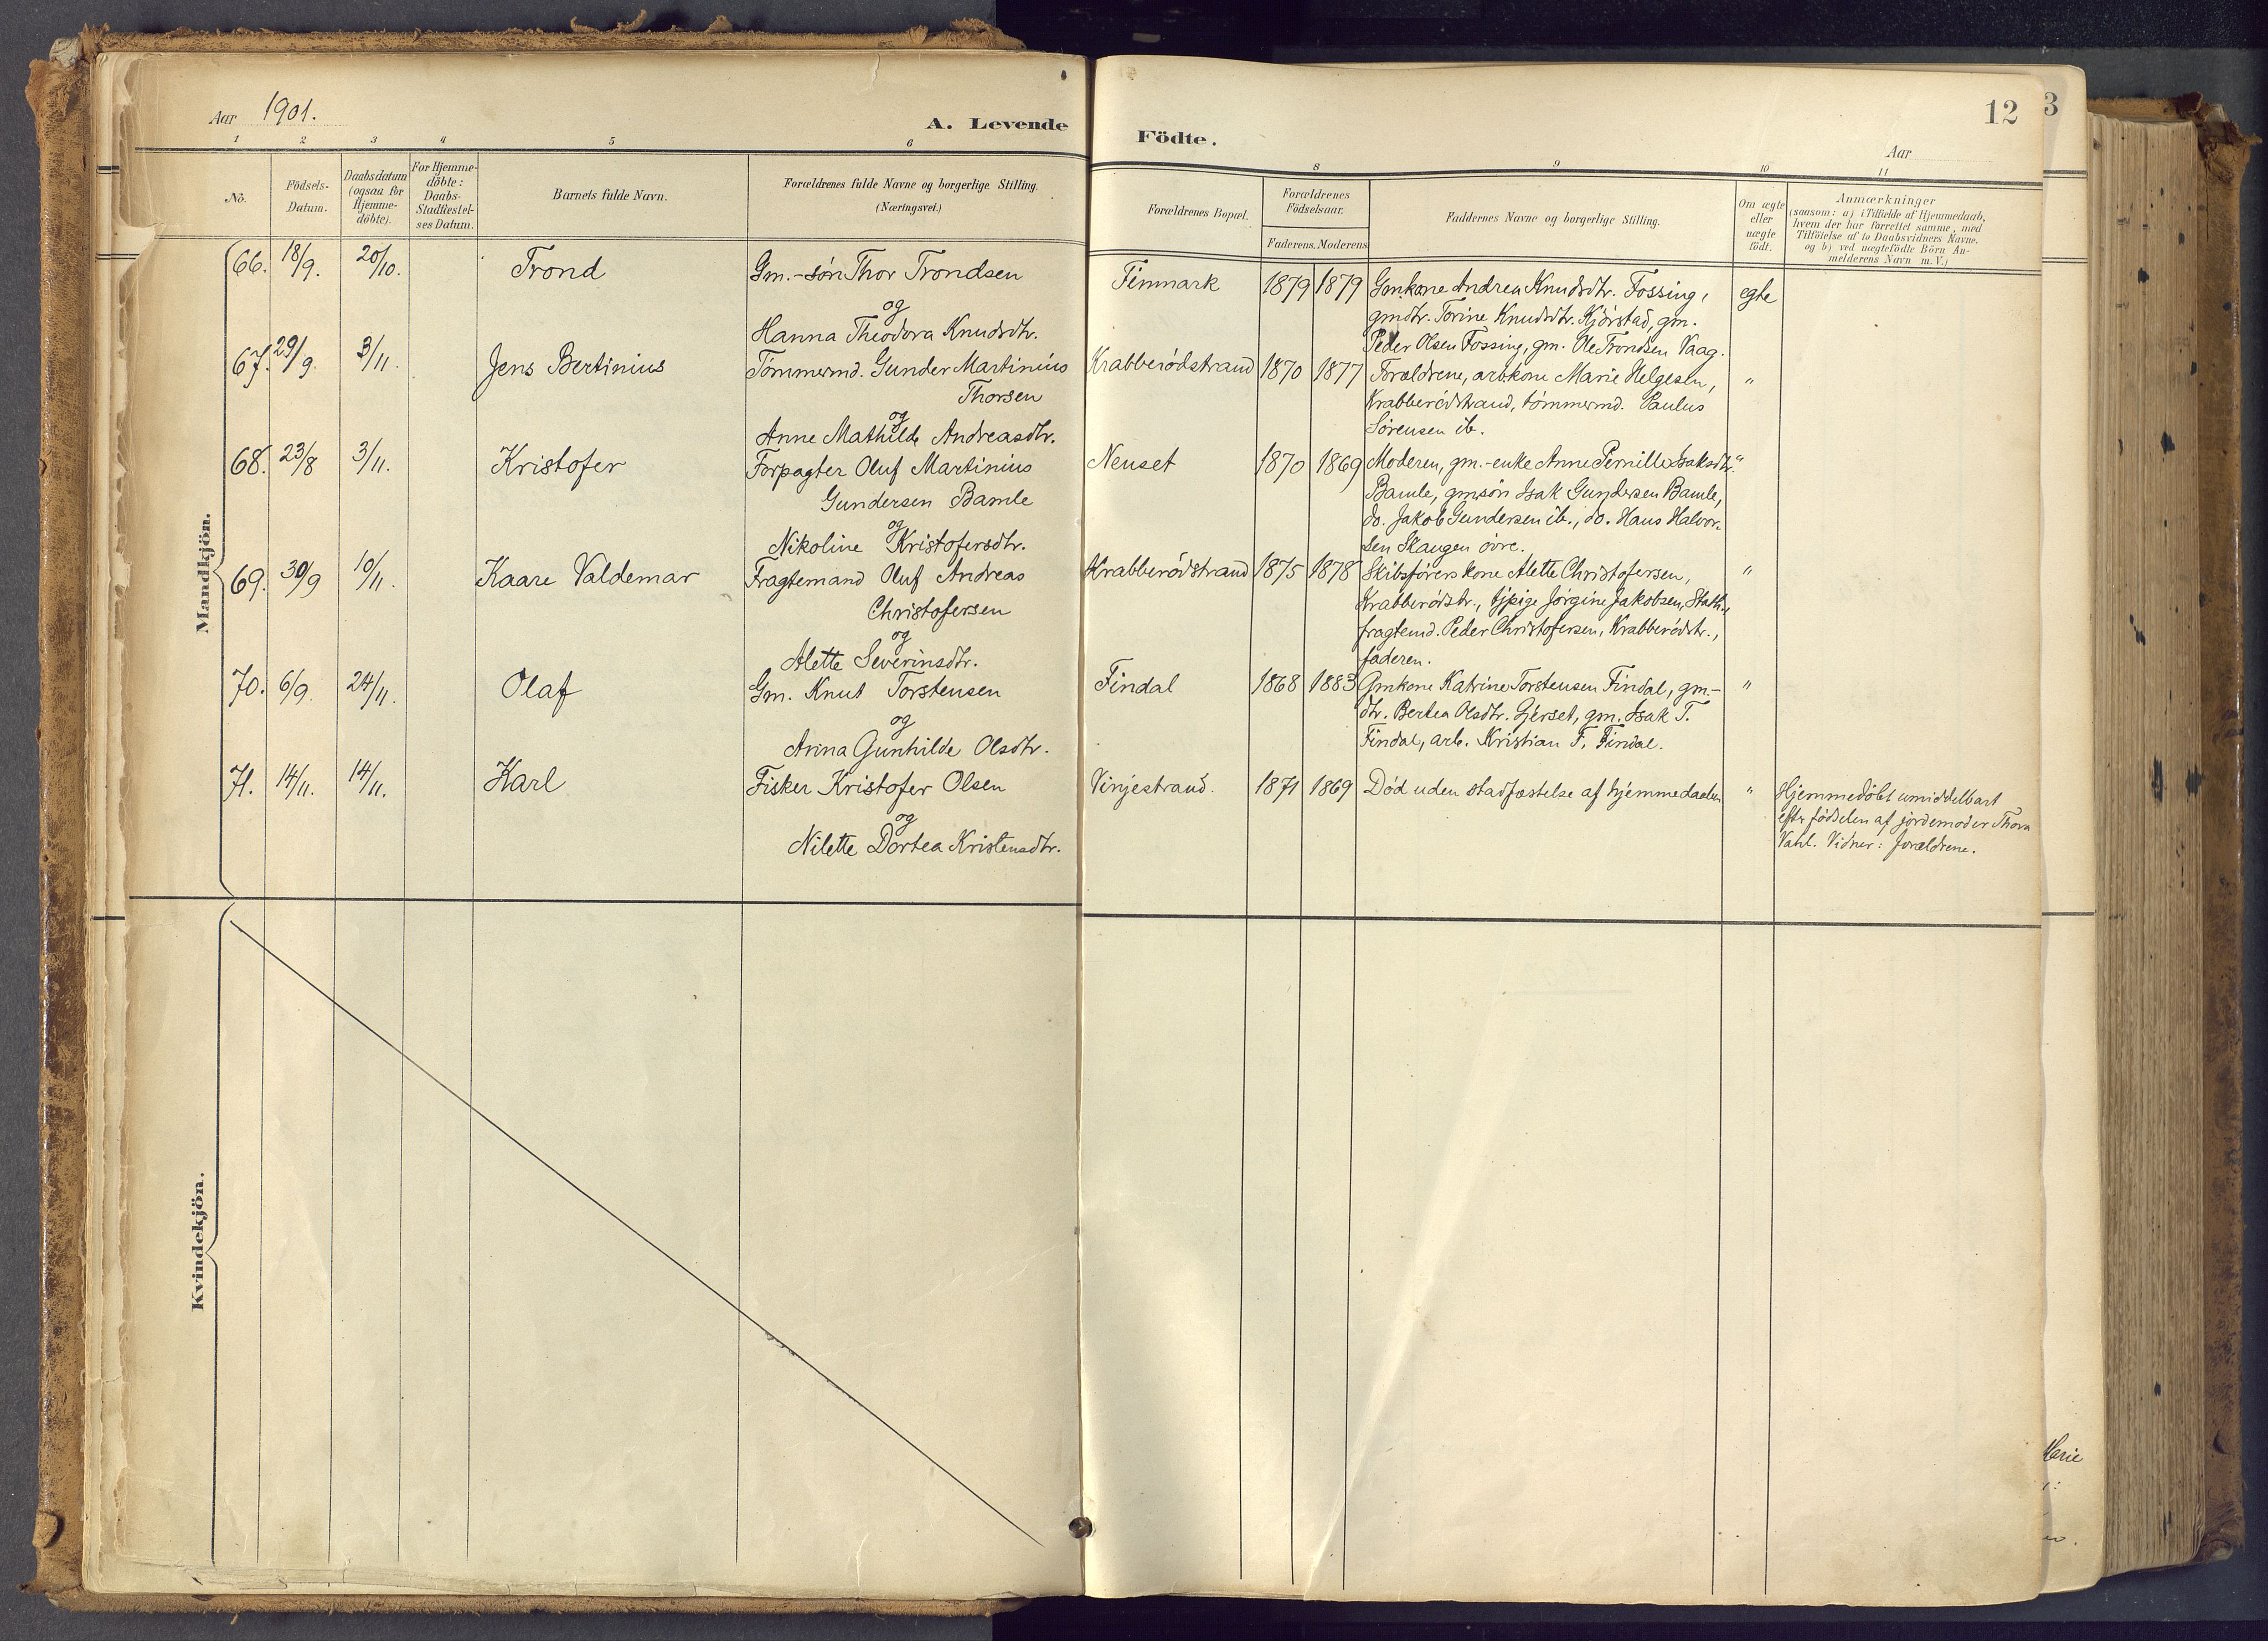 Aar 1901.
A. Levende
Födte.
12
3
Aar
1 2 3 4 5 6
8 9 10 11
No.
Födsels-
Datum.
Daabsdatum
(ogsaa for
Hjemme-
döbte).
For Hjemme-
döbte:
Daabs-
Stadfæstel-
ses Datum.
Barnets fulde Navn.
Forældrenes fulde Navne og borgerlige Stilling.
(Næringsvei.)
Forældrenes Bopæl.
Forældrenes
Födselsaar.
Faderens. Moderens.
Faddernes Navne og borgerlige Stilling.
Om ægte
eller
uægte
födt.
Anmærkninger
(saasom: a) i Tilfælde af Hjemmedaab,
hvem der har forrettet samme, med
Tilföielse af to Daabsvidners Navne.
og b) ved uægtefödte Börn An-
melderens Navn m. V.)
Mandkjön.
66. 18/9. 20/10. Trond
Gm.-søn Thor Trondsen
og
Hanna Theodora Knudsdtr.
Finmark 1879 1879
Gmkone Andrea Knudsdtr. Fossing,
gmdtr. Torine Knudsdtr. Kjørstad, gm.
Peder Olsen Fossing, gm. Ole Trondsen Vaag.
egte
67. 29/9. 3/11. Jens Bertinius
Tømmermd. Gunder Martinius
Thorsen
og
Anne Mathilde Andreasdtr.
Krabberødstrand 1870 1877
Forældrene, arbkone Marie Helgesen,
Krabberødstrand, tømmermd. Paulus
Sørensen ib.
"
68. 23/8 3/11. Kristofer
Forpagter Oluf Martinius
Gundersen Bamle
og
Nikoline Kristofersdtr.
Neuset 1870 1869
Moderen, gm.-enke Anne Pernille Isaksdtr.
Bamle, gmsøn Isak Gundersen Bamle,
do. Jakob Gundersen ib., do. Hans Halvor-
sen Skaugen øvre.
"
69. 30/9 10/11. Kaare Valdemar
Fragtemand Oluf Andreas
Christofersen
og
Alette Severinsdtr.
Krabberødstrand 1875 1878
Skibsførerskone Alette Christofersen,
Krabberødstr., tjpige Jørgine Jakobsen, Stath.,
fragtemd. Peder Christofersen, Krabberødstr.,
faderen.
"
70. 6/9. 24/11. Olaf
Gm. Knut Torstensen
og
Anna Gunhilde Olsdtr.
Findal 1868 1883
Gmkone Katrine Torstensen Findal, gm.-
dtr. Bertea Olsdtr. Gjerset, gm. Isak T.
Findal, arb. Kristian F. Findal.
"
71. 14/11. 14/11. Karl
Fisker Kristofer Olsen
og
Nilette Dortea Kristensdtr.
Vinjestrand. 1871 1869
Død uden stadfæstelse af hjemmedaaben
"
Hjemmedøbt umiddelbart
efter fødselen af jordemoder Thora
Vahl. Vidner: forældrene.
Kvindekjön.